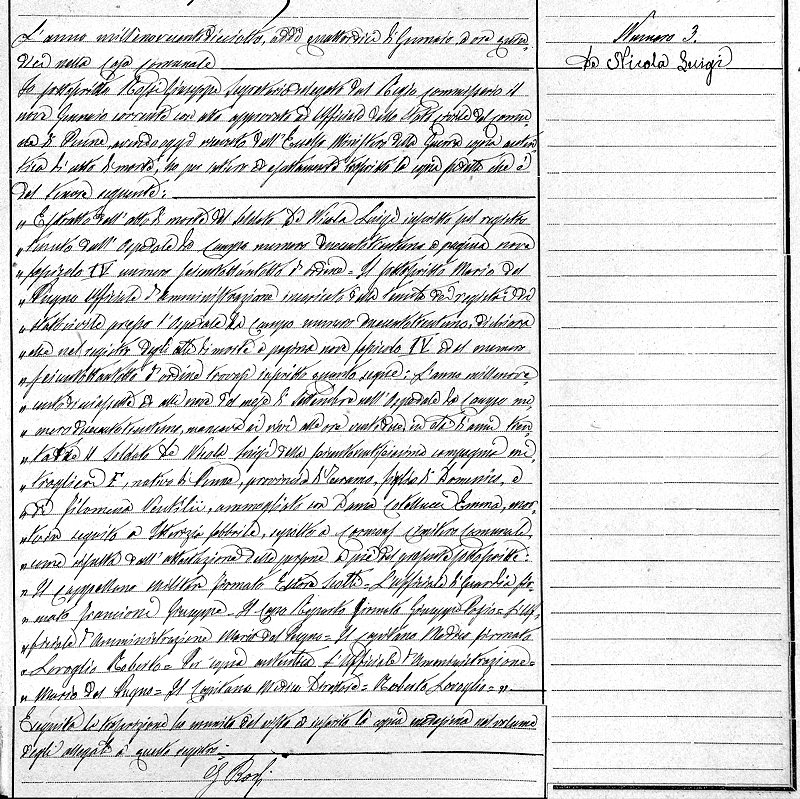 L'anno millenovecentodiciotto, addì quattordici di Gennaio, a ore quin-
dici nella Casa Comunale
Io sottoscritto Rossi Giuseppe Segretario delegato dal Regio Commissario il
nove Gennaio corrente con atto approvato ad Ufficiale dello Stato Civile del Comu-
ne di Penne, avendo oggi ricevuto dall'Eccelso Ministero della Guerra copia auten-
tica di atto di morte, ho per intiero ed esattamente trascritto la copia predetta che è
del tenore seguente:
" Estratto dell'atto di morte del Soldato De Nicola Luigi inscritto sul registro
" tenuto dall'Ospedale da Campo numero Duecentotrentuno a pagina nove
" fascicolo IV numero seicentottantotto d'ordine = Il sottoscritto Mario del
" Pugno Ufficiale d'amministrazione incaricato della tenuta dei registri dello
" stato civile presso l'Ospedale da Campo numero duecentotrentuno, dichiara
" che nel registro degli atti di morte a pagina nove fascicolo IV ed al numero
" seicentottantotto d'ordine trovasi inscritto quanto segue: L'anno millenove-
" centodiciassette ed alli nove del mese di Settembre nell'Ospedale da Campo nu-
" mero duecentotrentuno, mancava ai vivi alle ore ventidue in età di anni tren-
" ta il Soldato De Nicola Luigi della compagnia mi-
" traglieri F, nativo di Penne, provincia di Teramo, figlio di Domenico, e
" di Filomena ammogliato con Emma, mor-
" to in seguito a sepolto a Cormons Cimitero Comunale,
" come risulta dall'attestazione delle persone a piè del presente sottoscritte:
" Il Cappellano militare firmato Ettore = L'ufficiale di Guardia fir-
" mato Francione Giuseppe = Il Capo Reparto firmato Giuseppe = L'Uf-
" ficiale d'Amministrazione Mario del Pugno = Il Capitano Medico firmato
" Loroglio Roberto = Per copia autentica L'Ufficiale d'Amministrazione =
" Mario del Pugno = Il Capitano Medico Direttore = Roberto Loroglio = "
Eseguita la trascrizione ho munito del visto ed inserto la copia medesima nel volume
degli allegati a questo registro:
G Rossi
Numero 3.
De Nicola Luigi